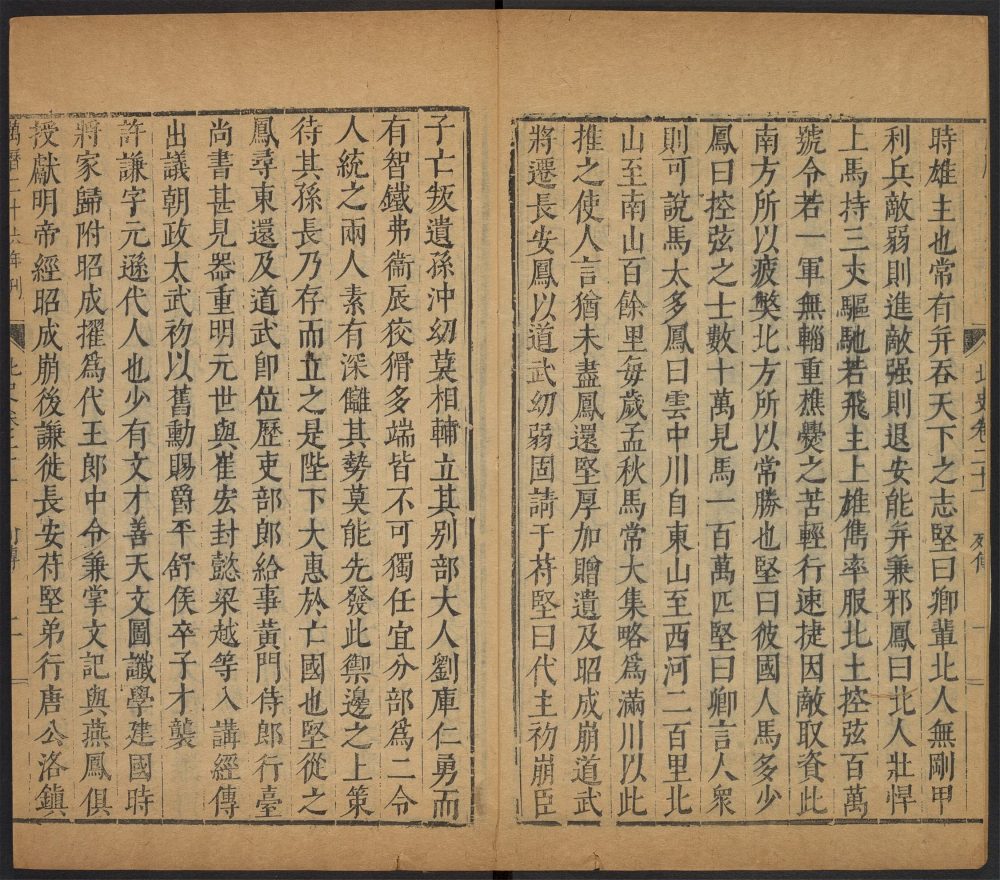 北史卷二十一 列傳 一
時雄主也常有幷吞天下之志堅曰卿輩北人無剛甲
利兵敵弱則進敵强則退安能幷兼邪鳳曰北人壯悍
上馬持三丈驅馳若飛主上雄雋率服北土控弦百萬
號令若一軍無輜重樵爨之苦輕行速捷因敵取資此
南方所以疲獘北方所以常勝也堅曰彼國人馬多少
鳳曰控弦之士數十萬見馬一百萬匹堅曰卿言人衆
則可說馬太多鳳曰雲中川自東山至西河二百里北
山至南山百餘里每歲孟秋馬常大集略爲滿川以此
推之使人言猶未盡鳳還堅厚加贈遺及昭成崩道武
將遷長安鳳以道武幼弱固請于苻堅曰代主初崩臣
子亡叛遺孫沖幼莫相輔立其别部大人劉庫仁勇而
有智鐵弗衞辰狡猾多端皆不可獨任宜分部爲二令
人統之兩人素有深讎其勢莫能先發此禦邊之上策
待其孫長乃存而立之是陛下大惠於亡國也堅從之
鳳尋東還及道武卽位歷吏部郎給事黃門侍郎行臺
尚書甚見器重明元世與崔宏封懿梁越等入講經傳
出議朝政太武初以舊勳賜爵平舒侯卒子才襲
許謙字元遜代人也少有文才善天文圖讖學建國時
將家歸附昭成擢爲代王郎中令兼掌文記與燕鳳俱
授獻明帝經昭成崩後謙徙長安苻堅弟行唐公洛鎭
萬曆二十六年刊 北史卷二十一 列傳 二